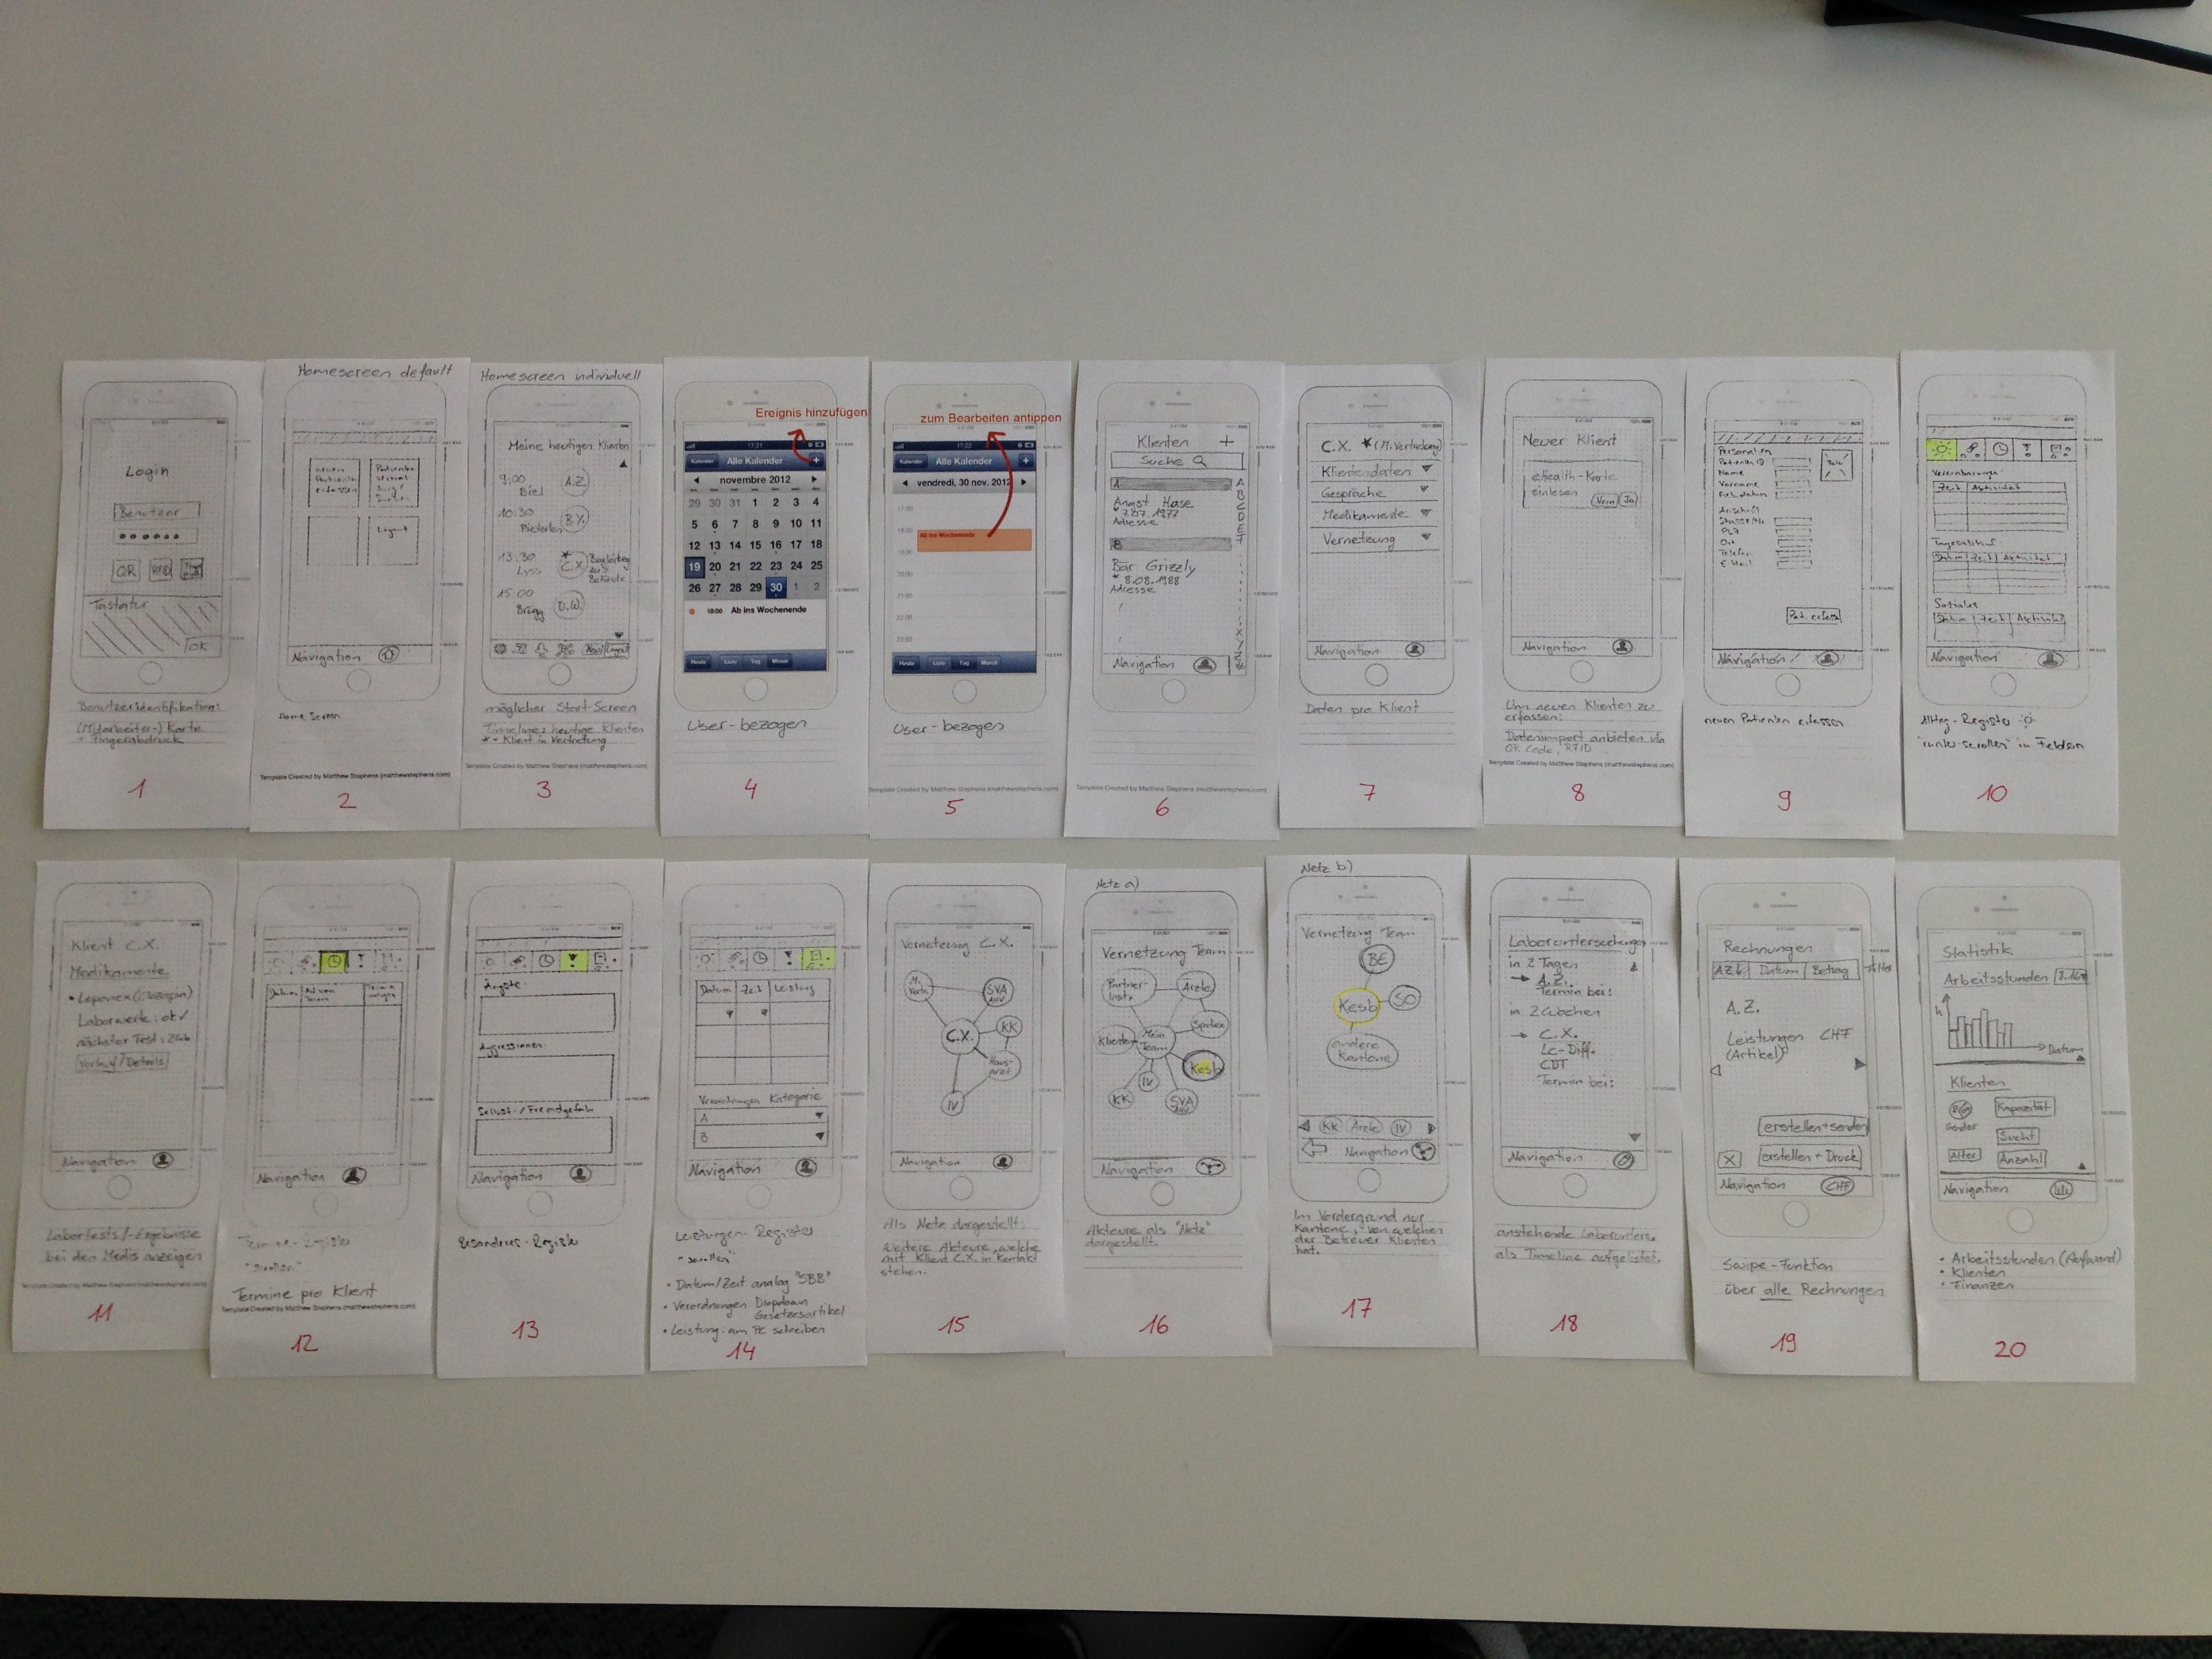 Login
Benutzer
QR
RFID
Tastatur
OK
Benutzeridentifikation:
(Mitarbeiter-) Karte
+ Fingerabdruck
1
Homescreen default
neuen
Patienten
erfassen
Logout
Navigation
Home Screen
Template Created by Matthew Stephens (matthewstephens.com)
2
Homescreen individuell
Meine heutigen Klienten
9:00
Biel
A.Z.
10:30
Pieterlen
B.Y.
13:30
Lyss
* C.X.
Begleitung
zu
Behörde
15:00
Brügg
D.W.
möglicher Start-Screen
Timeline: heutige Klienten
* = Klient in Vertretung
Template Created by Matthew Stephens (matthewstephens.com)
3
Ereignis hinzufügen
17:21
Kalender
Alle Kalender
+
novembre 2012
29 30 31 1 2 3 4
5 6 7 8 9 10 11
12 13 14 15 16 17 18
19 20 21 22 23 24 25
26 27 28 29 30 1 2
18:00 Ab ins Wochenende
Heute Liste Tag Monat
User-bezogen
4
zum Bearbeiten antippen
17:22
Kalender
Alle Kalender
+
vendredi, 30 nov. 2012
17:00
18:00
Ab ins Wochenende
19:00
20:00
21:00
22:00
23:00
Heute Liste Tag Monat
User-bezogen
Template Created by Matthew Stephens (matthewstephens.com)
5
Klienten +
Suche
A
Angst Hase
* 7.07.1977
Adresse
B
Bär Grizzly
* 8.08.1988
Adresse
A
B
C
D
E
F
X
Y
Z
#
Navigation
Template Created by Matthew Stephens (matthewstephens.com)
6
C.X. * (M.Vertretung)
Klientendaten
Gespräche
Medikamente
Vernetzung
Navigation
Daten pro Klient
7
Neuer Klient
eHealth-Karte
einlesen
Nein Ja
Navigation
Um neuen Klienten zu
erfassen:
Datenimport anbieten via
QR Code, RFID
Template Created by Matthew Stephens (matthewstephens.com)
8
Personalien
Patienten ID
Name
Vorname
Geb.datum
Foto
Anschrift
Strasse/Nr.
PLZ
Ort
Telefon
E-Mail
Pat. erfassen
Navigation
neuen Patienten erfassen
9
Vereinbarungen
Zeit Aktivität
Tagesablauf
Datum Zeit Aktivität
Soziales
Datum Zeit Aktivität
Navigation
Alltag-Register
"runter-scrollen" in Feldern
10
Klient C.X.
Medikamente
• Leponex (Clozapin)
Laborwerte: ok ✓
nächster Test:
Verlauf/Details
Navigation
Labortests/-Ergebnisse
bei den Medis anzeigen
Template Created by Matthew Stephens (matthewstephens.com)
11
Datum
Navigation
Termine-Register
"scrollen"
Termine pro Klient
Template Created by Matthew Stephens (matthewstephens.com)
12
Ängste
Aggressionen
Selbst-/Fremdgefahr
Navigation
Besonderes-Register
13
Datum Zeit Leistung
Verordnungen Kategorie
A
B
Navigation
Leistungen-Register
"scrollen"
• Datum/Zeit analog "SBB"
• Verordnungen Dropdown
Gesetzesartikel
• Leistung am PC schreiben
14
Vernetzung C.X.
SVA
AHV
C.X.
KK
Hausarzt
IV
Navigation
Als Netz dargestellt:
Weitere Akteure, welche
mit Klient C.X. in Kontakt
stehen.
15
Netz a)
Vernetzung Team
Partner
Instr.
Ärzte
Klienten
Mein
Team
Spitex
Kesb
IV
KK
SVA
AHV
Navigation
Akteure als "Netz"
dargestellt.
16
Netz b)
Vernetzung Team
BE
Kesb
SO
andere
Kantone
KK Ärzte IV
Navigation
Im Vordergrund nur
Kantone, von welchen
der Betreuer Klienten
hat.
17
Laboruntersuchungen
in 2 Tagen
→ A.Z.
Termin bei:
in 2 Wochen
→ C.X.
Lc-Diff.
CDT
Termin bei:
Navigation
anstehende Laborunters.
als Timeline aufgelistet.
18
Rechnungen
AZ Datum Betrag
Filter
A.Z.
Leistungen CHF
(Artikel)
erstellen+senden
X
erstellen + Druck
Navigation CHF
Swipe-Funktion
über alle Rechnungen
19
Statistik
Arbeitsstunden
h
Datum
Klienten
Gender
Kapazität
Sucht
Alter
Anzahl
Navigation
• Arbeitsstunden (Aufwand)
• Klienten
• Finanzen
20